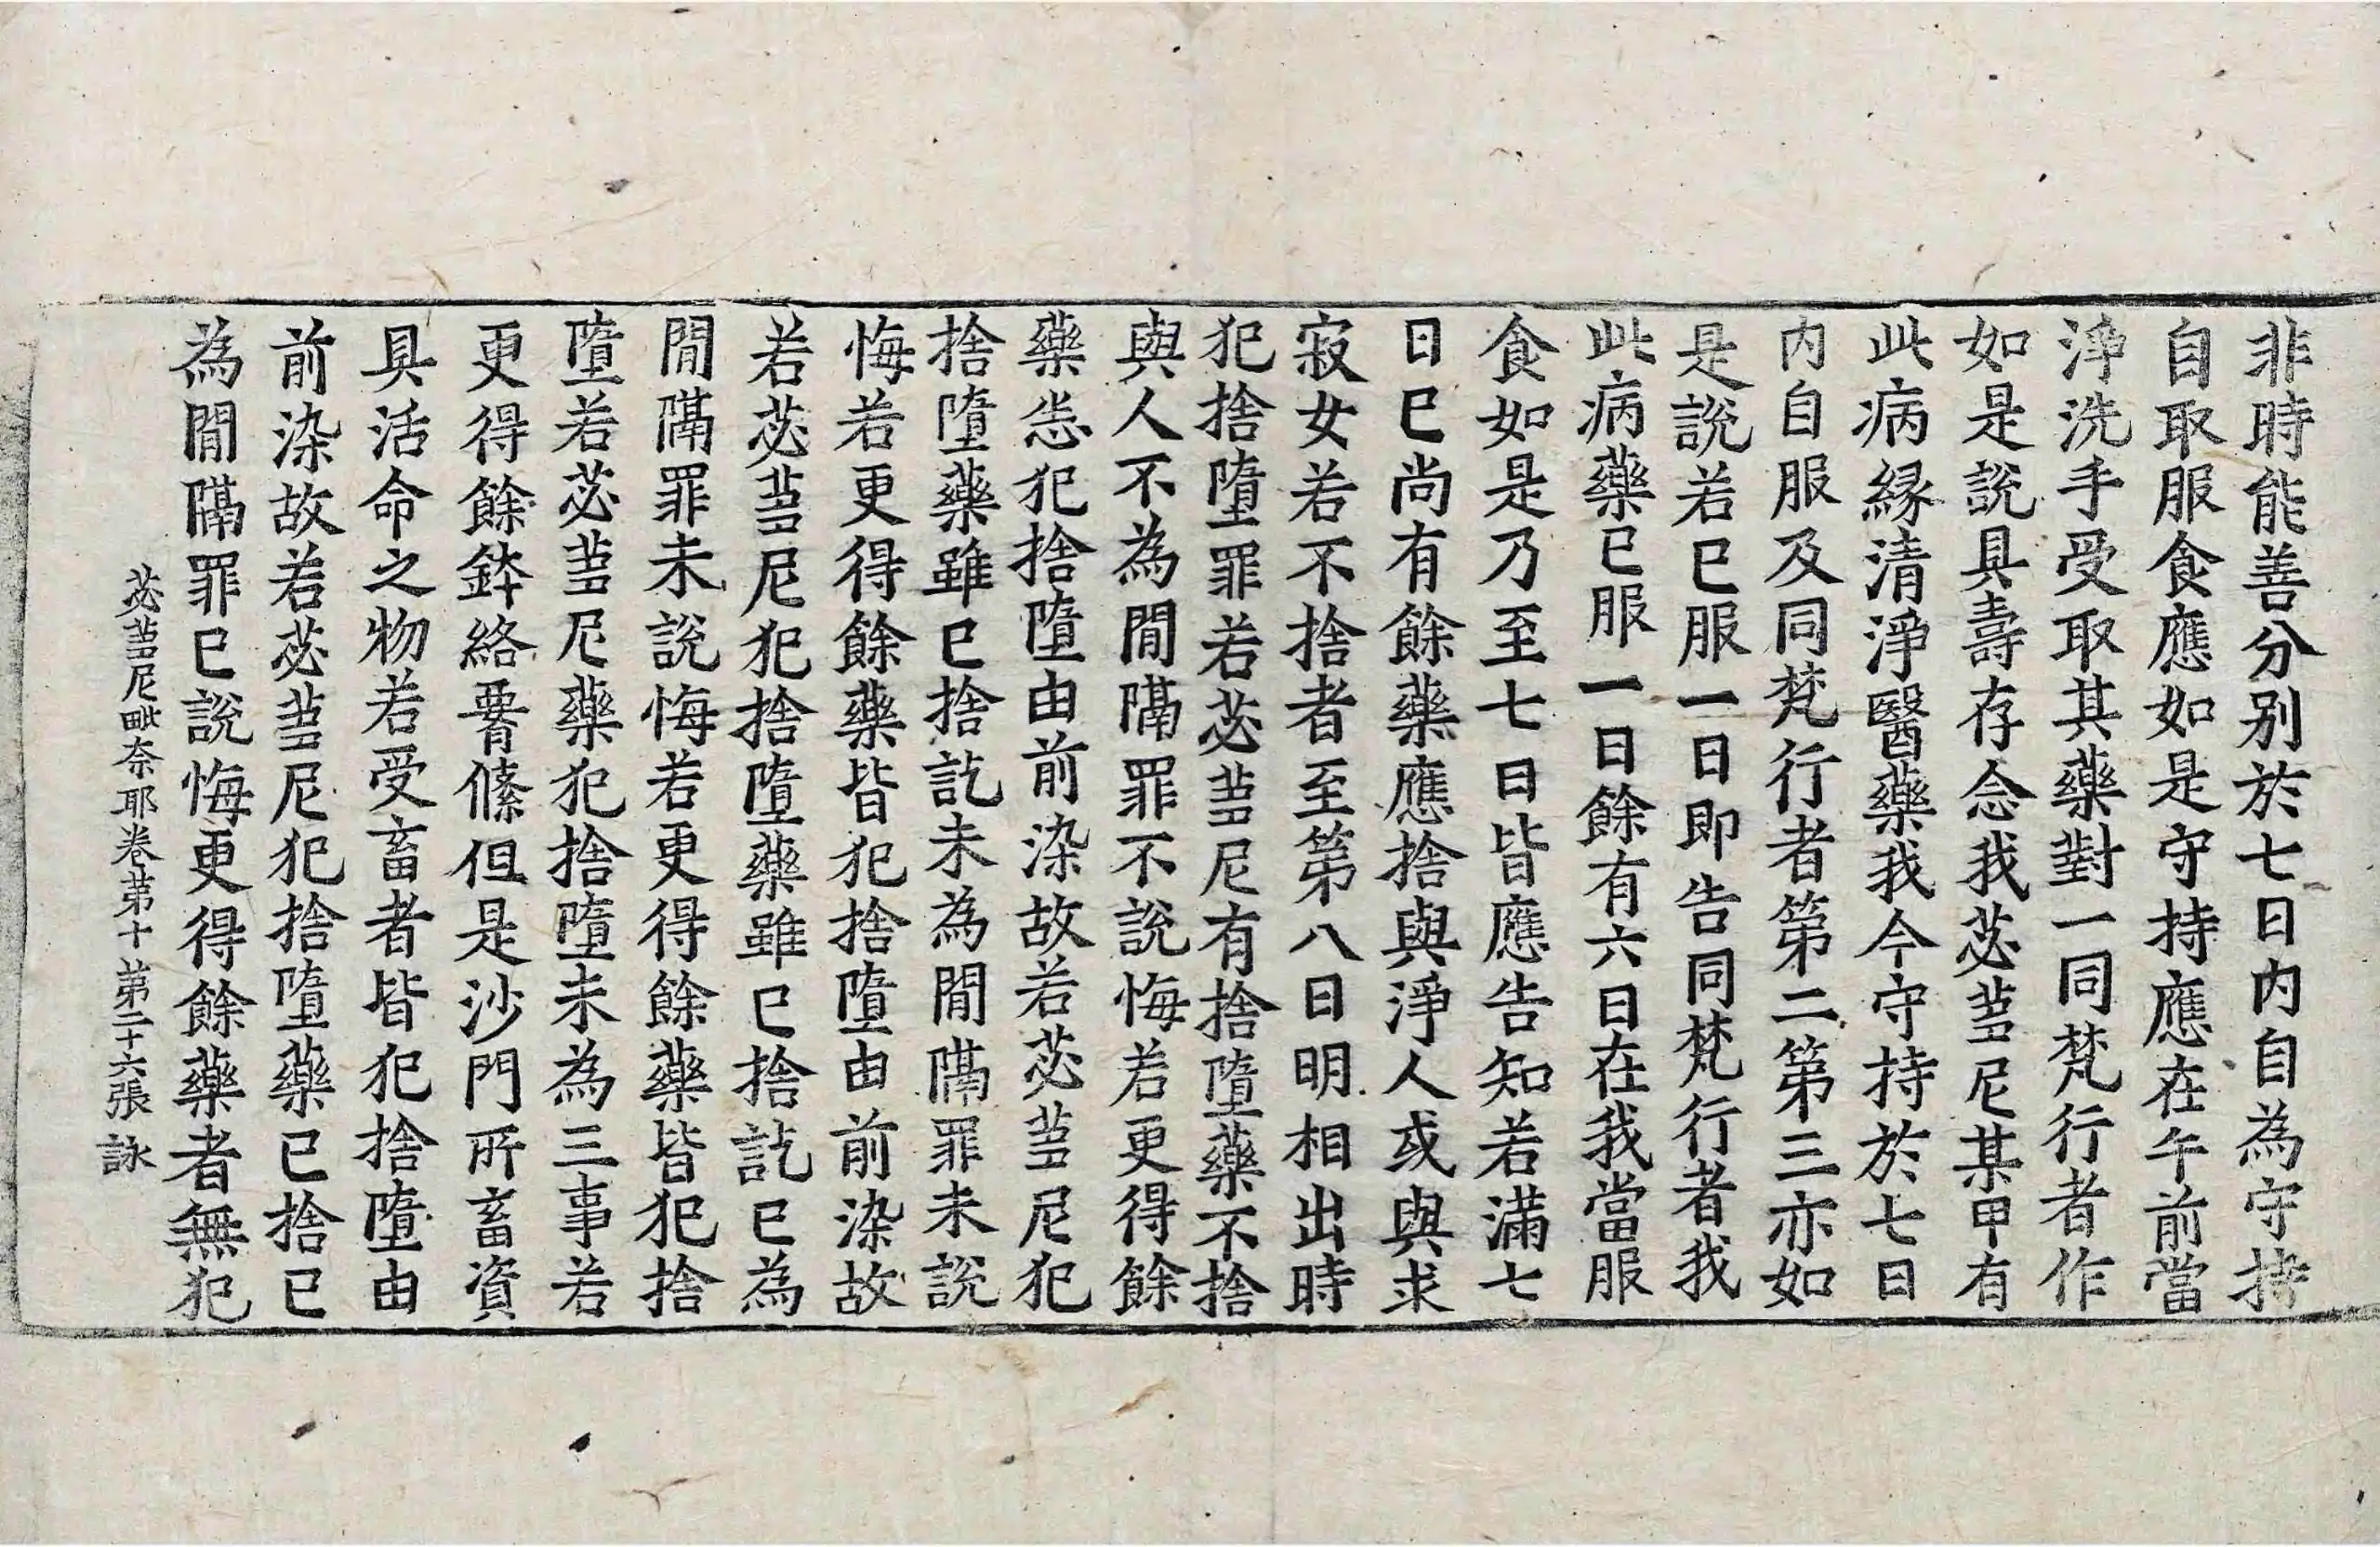 非時能善分別於七日內自為守持
自取服食應如是守持應在午前當
淨洗手受取其藥對一同梵行者作
如是說具壽存念我苾芻尼某甲有
此病緣清淨醫藥我今守持於七日
內自服及同梵行者第二第三亦如
是說若已服一日即告同梵行者我
此病藥已服一日餘有六日在我當服
食如是乃至七日皆應告知若滿七
日已尚有餘藥應捨與淨人或與求
寂女若不捨者至第八日明相出時
犯捨墮罪若苾芻尼有捨墮藥不捨
與人不為間隔罪不說悔若更得餘
藥悉犯捨墮由前染故若苾芻尼犯
捨墮藥雖已捨訖未為間隔罪未說
悔若更得餘藥皆犯捨墮由前染故
若苾芻尼犯捨墮藥雖已捨訖已為
間隔罪未說悔若更得餘藥皆犯捨
墮若苾芻尼藥犯捨墮未為三事若
更得餘鉢絡腰絛但是沙門所畜資
具活命之物若受畜者皆犯捨墮由
前染故若苾芻尼犯捨墮藥已捨已
為間隔罪已說悔更得餘藥者無犯
苾芻尼毗奈耶卷第十 第二十六張 詠